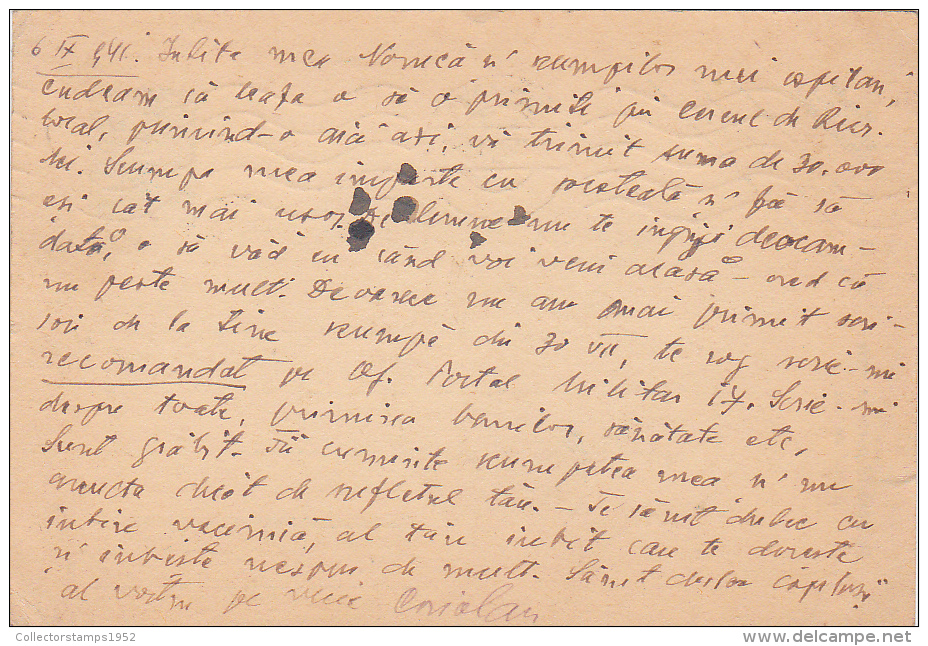 6 IX 941. Iubita mea Norică și scumpilor mei copilași,
credeam că leafa o să o primiți pin Cercul de Recr.
local, primind-o aică azi, vă trimit suma de 30.000
lei. Scumpa mea împarte cu socoteală și fă să
eși cât mai ușor. De lemne nu te îngriji deocam-
dată, o să văd eu când voi veni acasă - cred că
nu peste mult. Deoarece nu am mai primit scri-
sori de la tine scumpă din 30 VII, te rog scrie-mi
recomandat pe Of. Postal Militar 17. Scrie-mi
despre toate, primirea banilor, sănătate etc,
Sunt grăbit. Fii cuminte scumpetea mea și nu
asculta decât de sufletul tău. - Te sărut dulce cu
iubire vecinică, al tău iubit care te dorește
și iubește nespus de mult. Sărut dulce copilași
al vostru pe veci Coriolan
Collectorstamps1952
delcampe.net